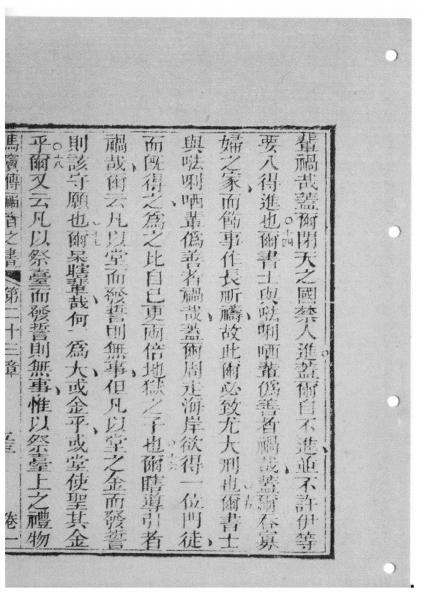 輩禍哉蓋爾閉天之國禁人進蓋爾自不進並不許伊等
要入得進也○十四爾書士與㕸唎哂輩偽善者禍哉蓋爾吞寡
婦之家而飾事作長祈禱故此爾必致尤大刑也○十五爾書士
與㕸唎哂輩偽善者禍哉蓋爾周走海岸欲得一位門徒
而既得之為之比自己更兩倍地獄之子也○十六爾瞎導引者
禍哉爾云凡以堂而發誓則無事但凡以堂之金而發誓
則該守願也○十七爾呆瞎輩哉何為大或金乎或堂使聖其金
乎○十八爾又云凡以祭臺而發誓則無事惟以祭臺上之禮物
馬竇傳福音之書 第二十三章 卷一